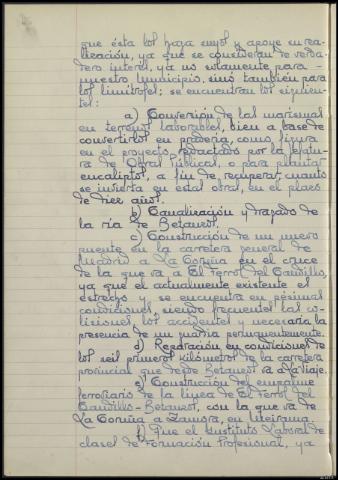 que ésta los haga suyos y apoye su rea-
lización, ya que se consideran de verda-
dero interés, ya no solamente para
nuestro Municipio, sinó también para
los limítrofes; se encuentran los siguien-
tes:
a) Conversión de las marismas
en terrenos laborables, bien a base de
convertirlos en pradería, como figura
en el proyecto redactado por la Jefatu-
ra de Obras Públicas, o para plantar
eucaliptos, a fin de recuperar cuanto
se invierta en estas obras, en el plazo
de diez años.
b) Canalización y dragado de
la ría de Betanzos.
c) Construcción de un nuevo
puente en la carretera general de
Madrid a La Coruña en el cruce
de la que va a El Ferrol del Caudillo,
ya que el actualmente existente es
estrecho y se encuentra en pésimas
condiciones, siendo frecuentes las co-
lisiones los accidentes y necesaria la
presencia de un guardia permanentemente.
d) Reparación en condiciones de
los seis primeros kilómetros de la carretera
provincial que desde Betanzos va a
e) Construcción del empalme
ferroviario de la línea de El Ferrol del
Caudillo-Betanzos, con la que va de
La Coruña a Zamora, en
f) Que el Instituto Laboral de
clases de Formación Profesional, ya